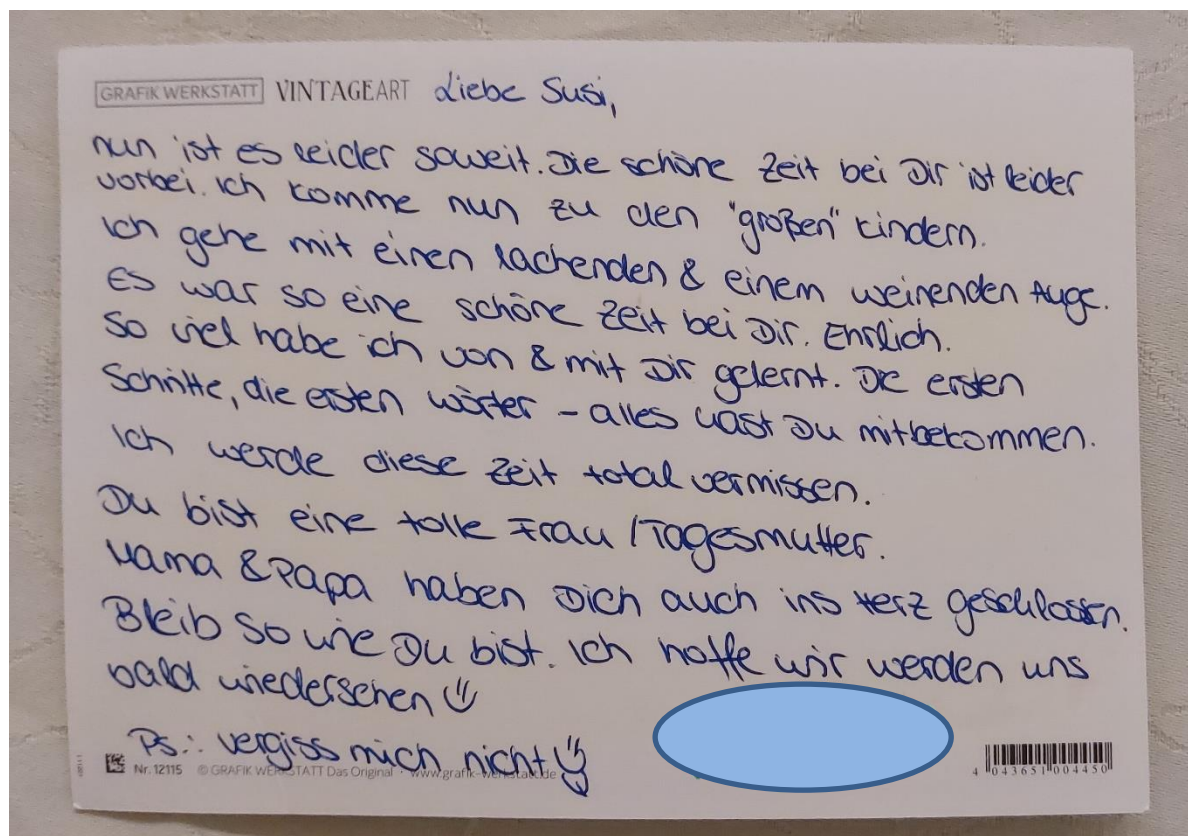 GRAFIK WERKSTATT VINTAGEART Liebe Susi,
nun ist es leider soweit. Die schöne Zeit bei Dir ist leider
vorbei. Ich komme nun zu den "großen" Kindern.
Ich gehe mit einen lachenden & einem weinenden Auge.
Es war so eine schöne Zeit bei Dir. Ehrlich.
So viel habe ich von & mit Dir gelernt. Die ersten
Schritte, die ersten Wörter - alles hast Du mitbekommen.
Ich werde diese Zeit total vermissen.
Du bist eine tolle Frau / Tagesmutter.
Mama & Papa haben Dich auch ins Herz geschlossen.
Bleib so wie Du bist. Ich hoffe wir werden uns
bald wiedersehen
Ps.: vergiss mich nicht
Nr. 12115 © GRAFIK WERKSTATT Das Original · www.grafik-werkstatt.de
4 043651 004450